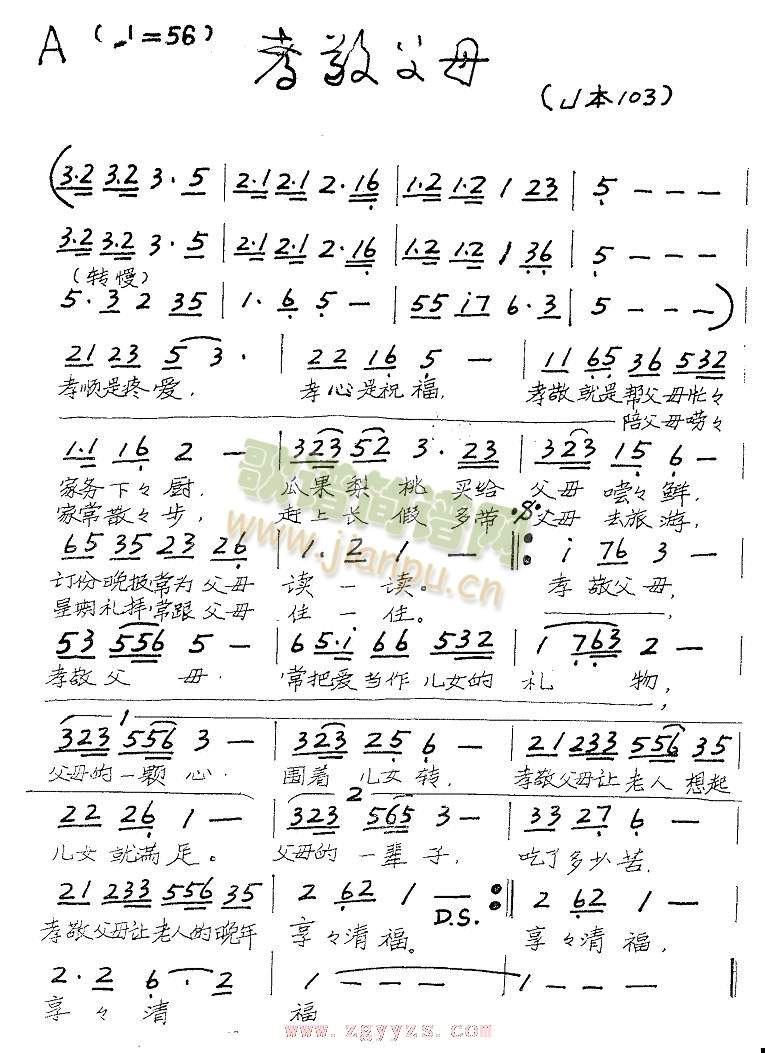 A (♩=56) 孝敬父母
(山本103)
(3.2 3.2 3. 5 | 2.1 2.1 2. 16 | 1.2 1.2 1 23 | 5 - - - |
3.2 3.2 3. 5 | 2.1 2.1 2. 16 | 1.2 1.2 1 36 | 5 - - - |
(转慢)
5. 3 2 35 | 1. 6 5 - | 55 i7 6. 3 | 5 - - -) |
21 23 5 3. | 22 16 5 - | 11 65 36 532 |
孝顺是疼爱, 孝心是祝福, 孝敬就是帮父母忙々
陪父母唠々
1.1 16 2 - | 323 52 3. 23 | 323 15 6 - |
家务下々厨, 瓜果梨桃买给父母嚐々鲜,
家常散々步, 赶上长假多带父母去旅游,
65 35 23 26 | 1. 2 1 - :‖ i 76 3 - |
订份晚报常为父母读一读。 孝敬父母,
星期礼拜常跟父母住一住。
53 556 5 - | 6 5.i 66 532 | 1 763 2 - |
孝敬父母 常把爱当作儿女的礼物,
1
323 556 3 - | 323 25 6 - | 21 233 556 35 |
父母的一颗心 围着儿女转, 孝敬父母让老人想起
2
22 26 1 - | 323 565 3 - | 33 27 6 - |
儿女就满足。 父母的一辈子, 吃了多少苦.
21 233 556 35 | 2 62 1 - :‖ 2 62 1 - |
D.S.
孝敬父母让老人的晚年享々清福。 享々清福,
2. 2 6. 2 | 1 - - - | 1 - - - ‖
享々清福
歌谱简谱网
www.jianpu.cn
www.zgyyzs.com